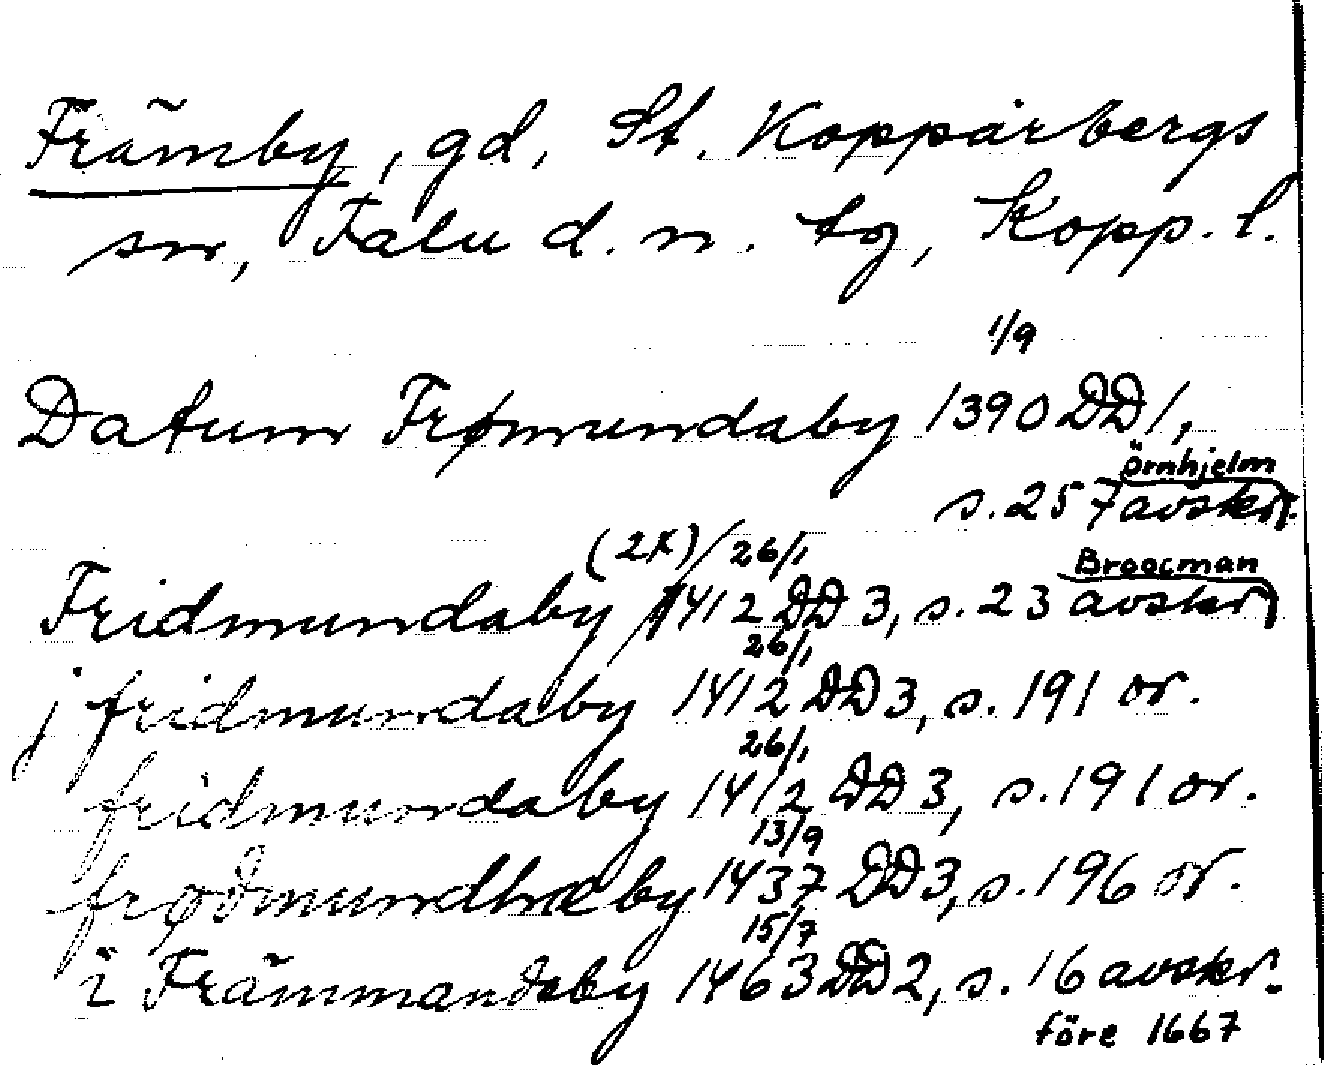 Främby, gd, St. Kopparbergs
sn, Falu d. n. tg, Kopp. l.
1/9
Datum Frømundaby 1390 DD 1,
Örnhjelm
s. 257 avskr.
(2x) 26/1 Broocman
Fridmundaby 1412 DD 3, s. 23 avskr
26/1
j fridmundaby 1412 DD 3, s. 191 or.
26/1
fridmundaby 1412 DD 3, s. 191 or.
13/9
frødmundhæby 1437 DD 3, s. 196 or.
15/7
i Främmandaby 1463 DD 2, s. 16 avskr.
före 1667